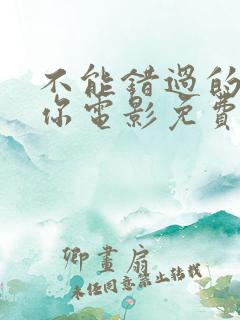 不能错过的
你电影免费
卿畫扇
未经同意禁止转载